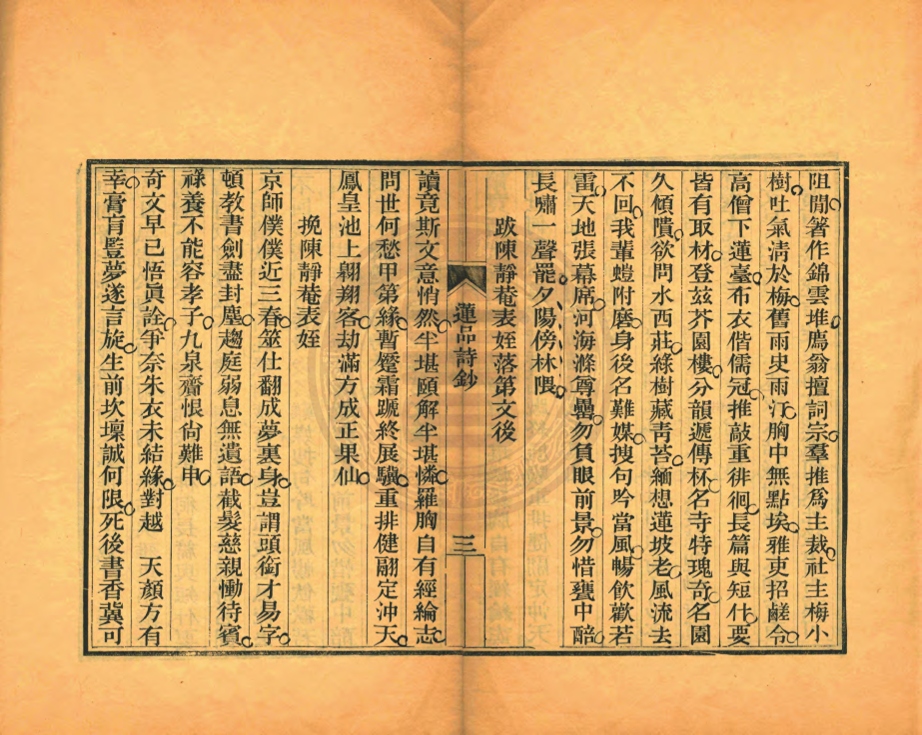 阻閒著作錦雲堆鷹翁擅詞宗羣推爲主裁社主梅小
樹吐氣淸於梅舊雨史雨汀胸中無點埃雅吏招鹺令
高僧下蓮臺布衣偕儒冠推敲重徘徊長篇與短什要
皆有取材登茲芥園樓分韻遞傳杯名寺特瑰奇名園
久傾隤欲問水西莊綠樹藏靑苔緬想蓮坡老風流去
不回我輩螘附磨身後名難媒搜句吟當風暢飮歡若
雷天地張幕席河海滌罇罍勿負眼前景勿惜甕中醅
長嘯一聲罷夕陽傍林隈
跋陳靜菴表姪落第文後
蓮品詩鈔
三
讀竟斯文意悄然半堪頤解半堪憐羅胸自有經綸志
問世何愁甲第緣暫蹙霜蹏終展驥重排健翮定沖天
鳳皇池上翺翔客劫滿方成正果仙
挽陳靜菴表姪
京師僕僕近三春筮仕翻成夢裏身豈謂頭銜才易字
頓教書劍盡封塵趨庭弱息無遺語截髮慈親慟待賓
祿養不能容孝子九泉齎恨尙難申
奇文早已悟眞詮爭奈朱衣未結緣對越　天顏方有
幸膏肓豎夢遂言旋生前坎壈誠何限死後書香冀可